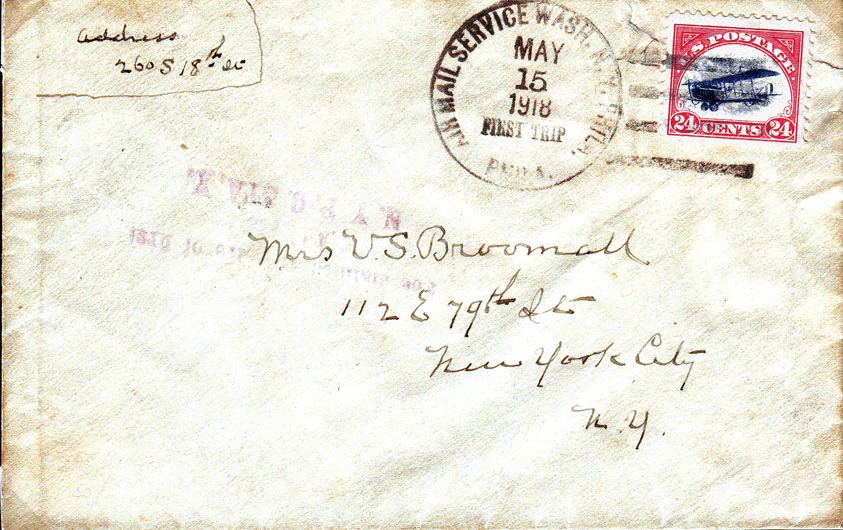 address
260 S 18th St
AIR MAIL SERVICE WASH. N.Y. PHILA.
MAY
15
1918
FIRST TRIP
PHILA.
U.S. POSTAGE
24 CENTS 24
Mrs V. S. Broomall
112 E 79th St
New York City
N. Y.